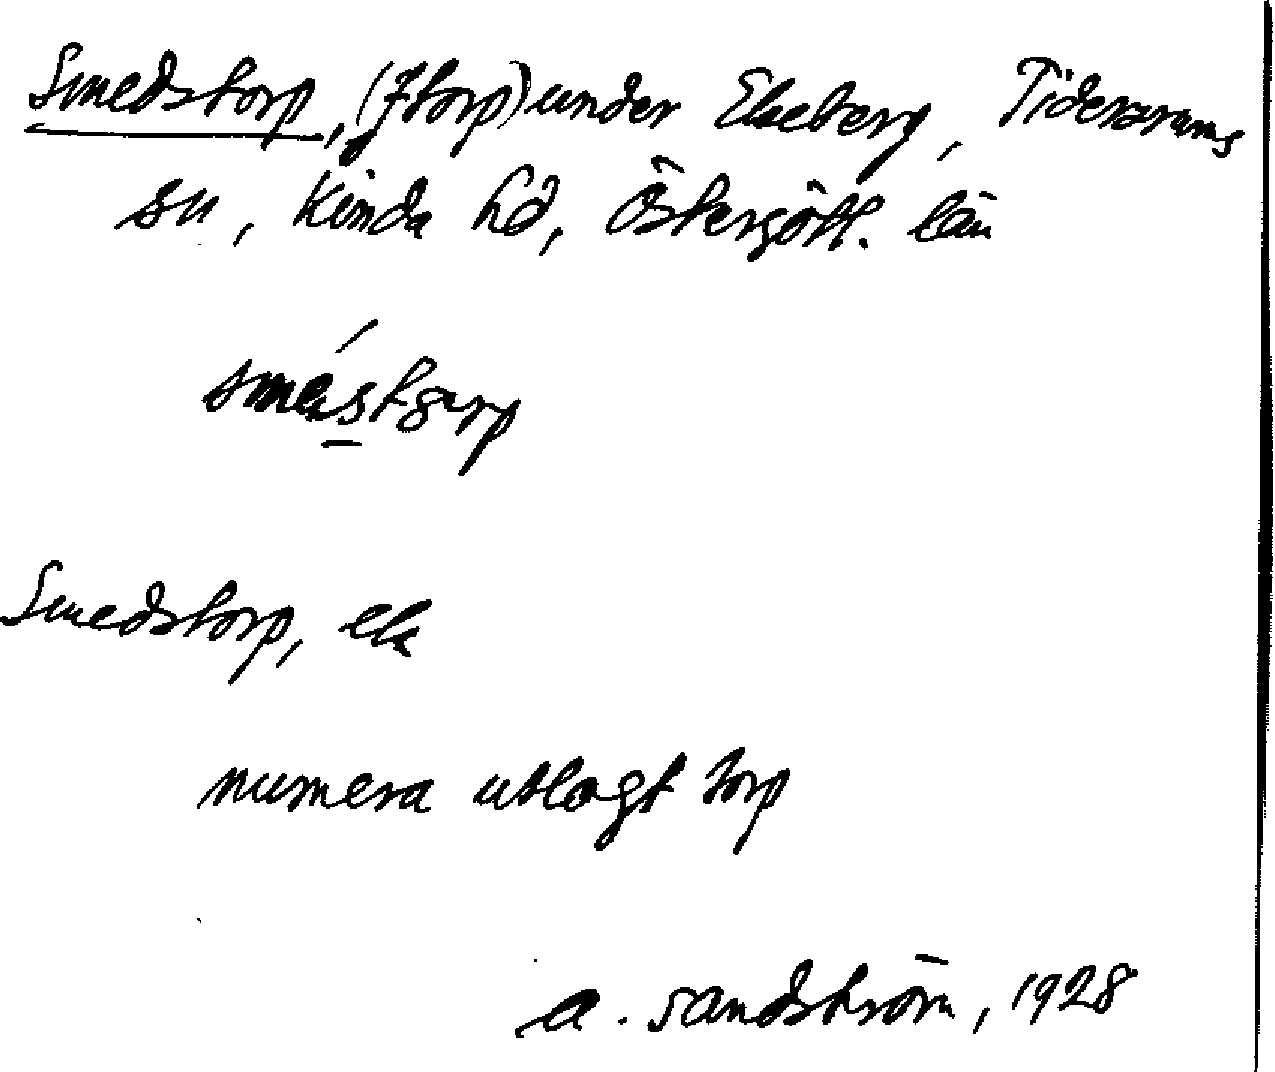 Smedstorp, (ƒtorp) under Ekeberg, Tidersrums
sn, Kinda hd, Östergötl. län
Smedstorp, ek
numera utlagt torp
A. Sandström, 1928